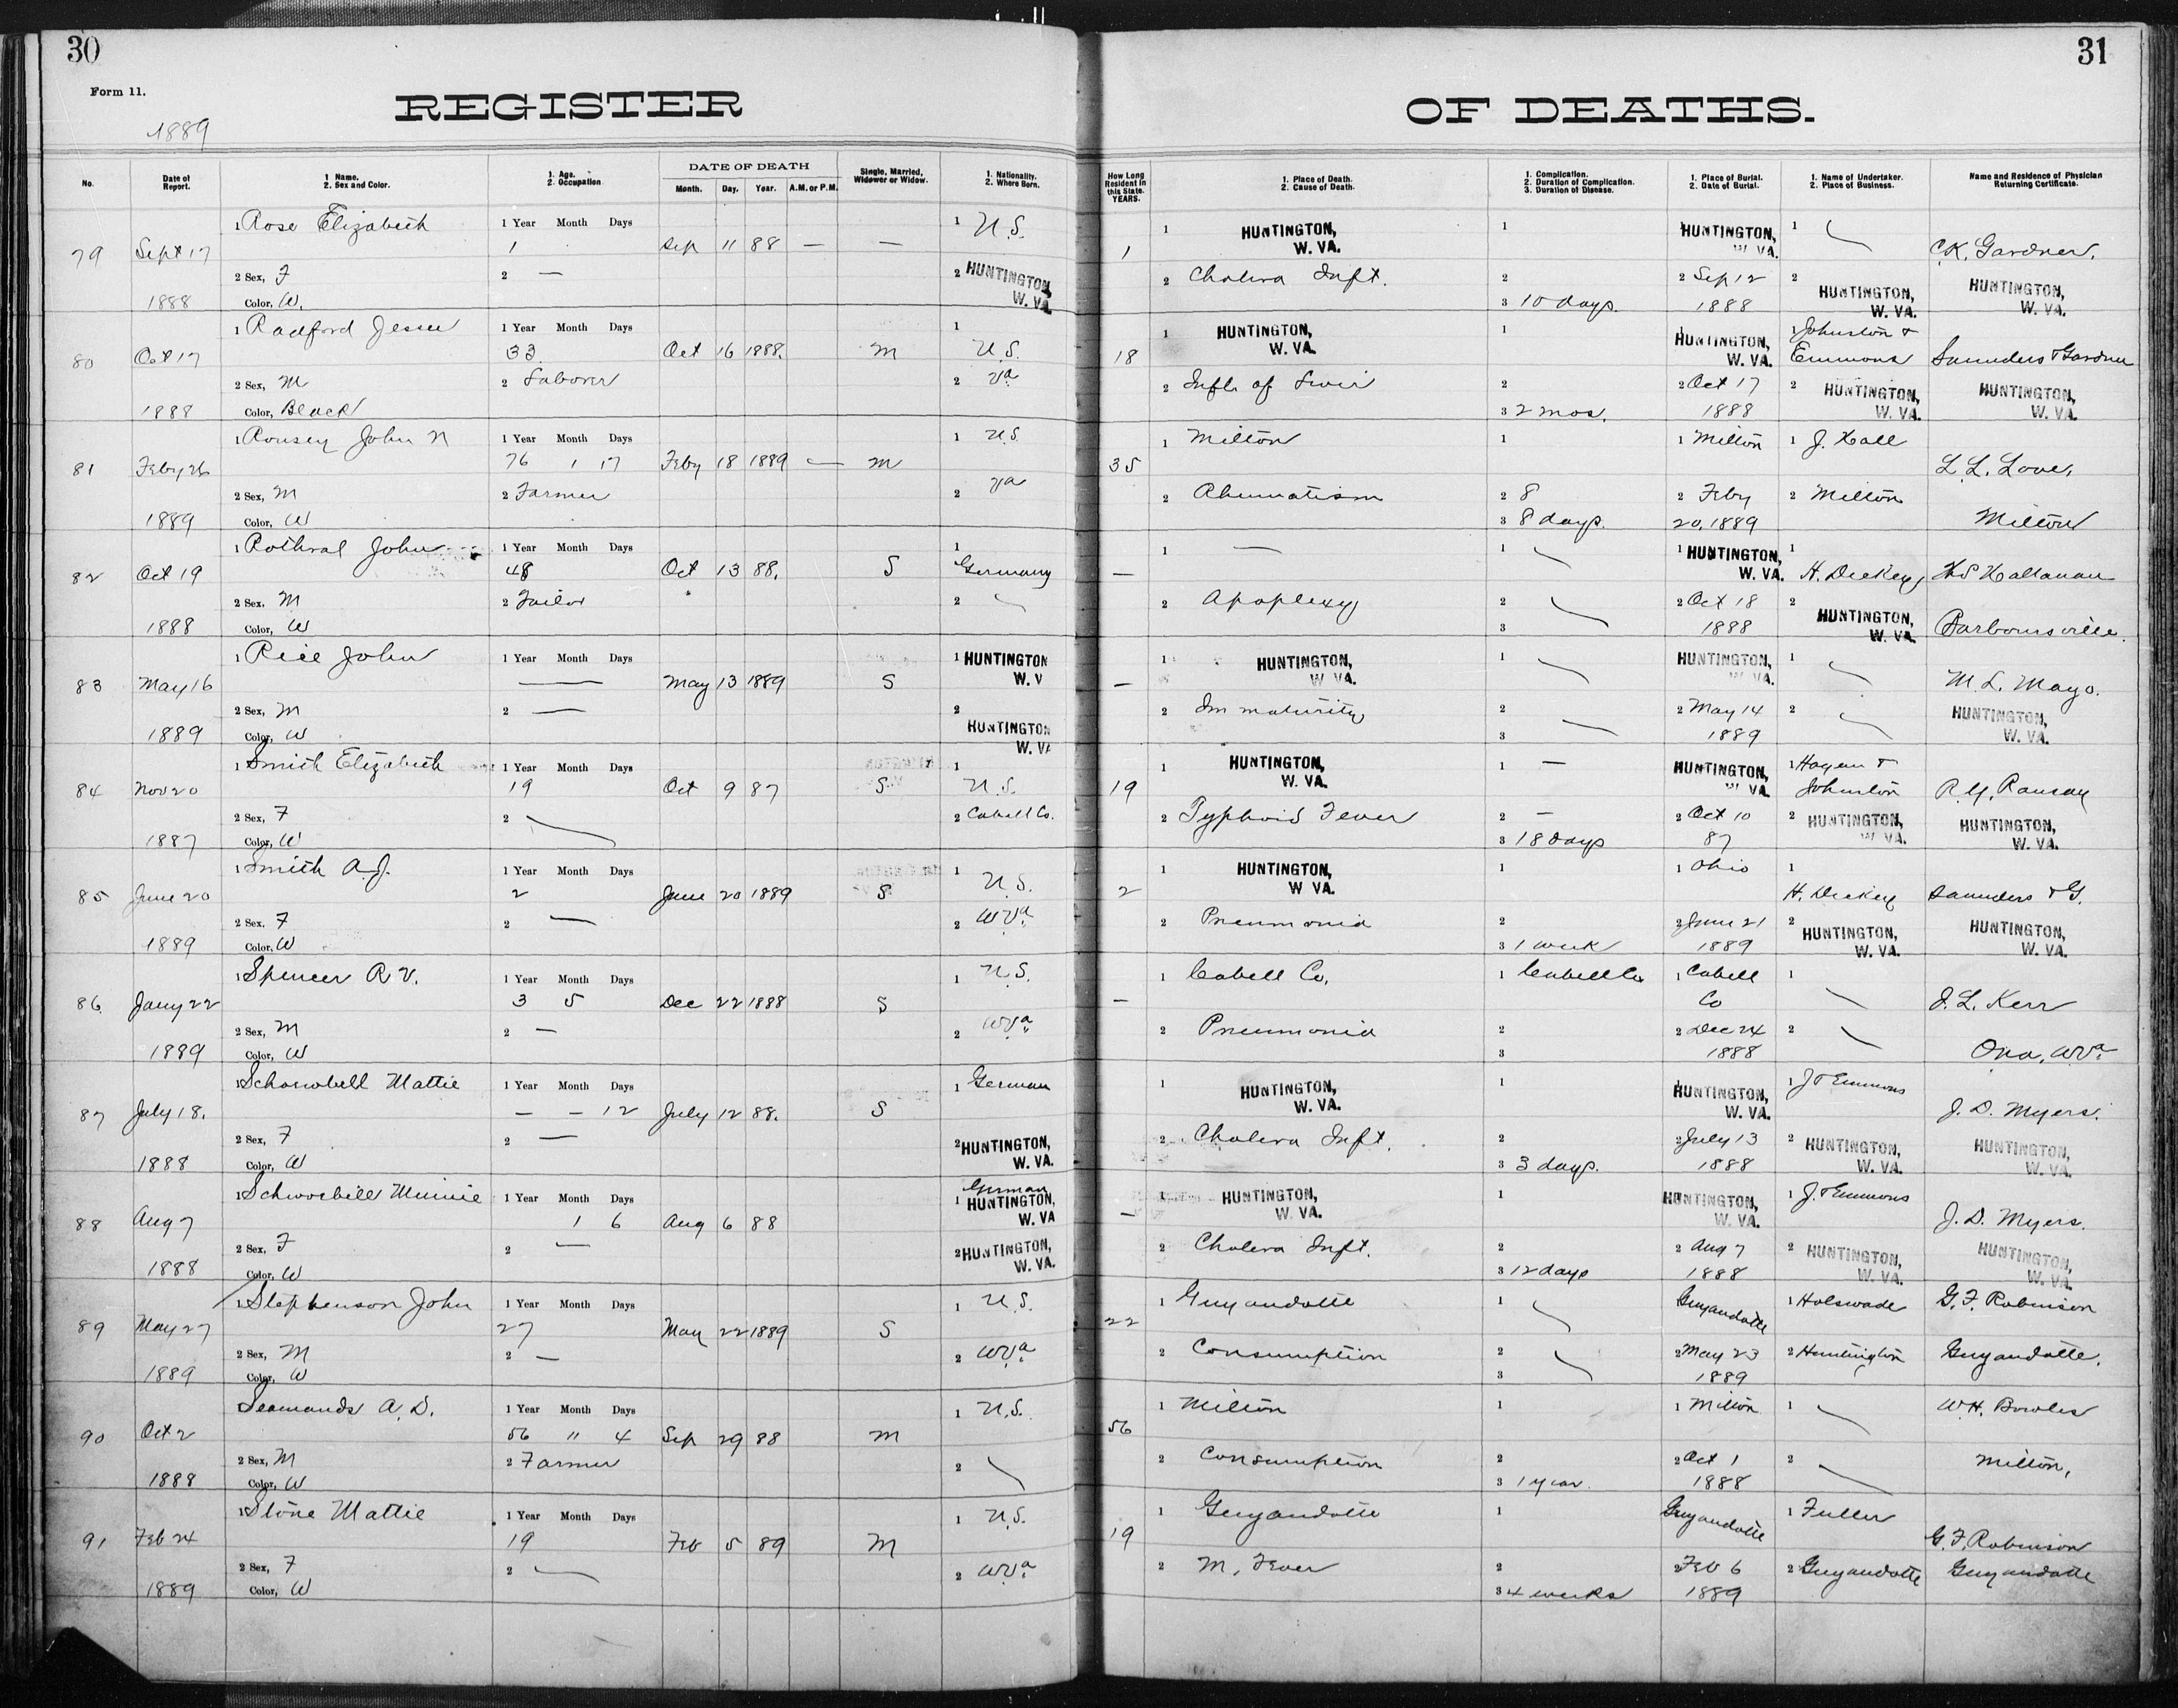 30
31
Form 11.
REGISTER OF DEATHS.
1889
No.
Date of Report.
1 Name. 2. Sex and Color.
1. Age. 2. Occupation.
DATE OF DEATH
Month. Day. Year. A.M. or P.M.
Single, Married, Widower or Widow.
1. Nationality. 2. Where Born.
How Long Resident in this State. YEARS.
1. Place of Death. 2. Cause of Death.
1. Complication. 2. Duration of Complication. 3. Duration of Disease.
1. Place of Burial. 2. Date of Burial.
1. Name of Undertaker. 2. Place of Business.
Name and Residence of Physician Returning Certificate.
1 Rose Elizabeth 1 Year Month Days 1 U.S. 1 HUNTINGTON, W. VA. 1 HUNTINGTON, W. VA. 1
79 Sept 17 1 Sep 11 88 — — 1 C.K. Gardner.
2 Sex, F 2 — 2 HUNTINGTON, W. VA. 2 Cholera Inft. 2 2 Sep 12 2 HUNTINGTON, W. VA. HUNTINGTON, W. VA.
1888 Color, W. 3 10 days. 1888
1 Radford Jesse 1 Year Month Days 1 1 HUNTINGTON, W. VA. 1 HUNTINGTON, W. VA. 1 Johnston &
80 Oct 17 33 Oct 16 1888. M U.S. 18 Emmons Saunders & Gardner
2 Sex, M 2 Laborer 2 Va 2 Infl. of 2 2 Oct 17 2 HUNTINGTON, W. VA. HUNTINGTON, W. VA.
1888 Color, Black 3 2 mos. 1888
1 Rousey John N 1 Year Month Days 1 U.S. 1 Milton 1 1 Milton 1 J. Hall
81 Feby 26 76 1 17 Feby 18 1889 — M 35 L. L. Love,
2 Sex, M 2 Farmer 2 Va 2 Rheumatism 2 8 2 Feby 2 Milton
1889 Color, W 3 8 days. 20, 1889 Milton
1 John 1 Year Month Days 1 1 — 1 1 HUNTINGTON, W. VA. 1
82 Oct 19 48 Oct 13 88. S Germany — H. Dickey,
2 Sex, M 2 Tailor 2 2 Apoplexy 2 2 Oct 18 2 HUNTINGTON, W. VA. Barboursville.
1888 Color, W 3 1888
1 Rice John 1 Year Month Days 1 HUNTINGTON W. V 1 HUNTINGTON, W. VA. 1 HUNTINGTON, W. VA. 1
83 May 16 — May 13 1889 S — M. L. Mayo.
2 Sex, M 2 — 2 HUNTINGTON W. VA 2 Immaturity 2 2 May 14 2 HUNTINGTON, W. VA.
1889 Color, W 3 1889
1 Smith Elizabeth 1 Year Month Days 1 1 HUNTINGTON, W. VA. 1 — HUNTINGTON, W. VA. 1 Hagen &
84 Nov 20 19 Oct 9 87 S U.S. 19 Johnston
2 Sex, F 2 2 Cabell Co. 2 Typhoid Fever 2 — 2 Oct 10 2 HUNTINGTON, W. VA. HUNTINGTON, W. VA.
1887 Color, W 3 18 days 87
1 Smith A.J. 1 Year Month Days 1 U.S. 1 HUNTINGTON, W VA. 1 1 Ohio 1
85 June 20 2 June 20 1889 S 2 H. Dickey Saunders & G.
2 Sex, F 2 — 2 WVa. 2 Pneumonia 2 2 June 21 2 HUNTINGTON, W. VA. HUNTINGTON, W. VA.
1889 Color, W 3 1 week 1889
1 Spencer R V. 1 Year Month Days 1 U.S. 1 Cabell Co. 1 Cabell Co 1 Cabell Co 1
86 Jany 22 3 5 Dec 22 1888 S — J. L. Kerr
2 Sex, M 2 — 2 WVa. 2 Pneumonia 2 2 Dec 24 2
1889 Color, W 3 1888 Ona, WVa.
1 Mattie 1 Year Month Days 1 German 1 HUNTINGTON, W. VA. 1 HUNTINGTON, W. VA. 1 J & Emmons
87 July 18. — — 12 July 12 88. S J. D. Myers.
2 Sex, F 2 — 2 HUNTINGTON, W. VA. 2 Cholera Inft. 2 2 July 13 2 HUNTINGTON, W. VA. HUNTINGTON, W. VA.
1888 Color, W 3 3 days. 1888
1 Minnie 1 Year Month Days 1 German HUNTINGTON, W. VA 1 HUNTINGTON, W. VA. 1 HUNTINGTON, W. VA. 1 J. & Emmons
88 Aug 7 1 6 Aug 6 88 — J. D. Myers.
2 Sex, F 2 — 2 HUNTINGTON, W. VA. 2 Cholera Inft. 2 2 Aug 7 2 HUNTINGTON, W. VA. HUNTINGTON, W. VA.
1888 Color, W 3 12 days 1888
1 Stephenson John 1 Year Month Days 1 U.S. 1 Guyandotte 1 Guyandotte 1 Holswade G. F. Robinson
89 May 27 27 May 22 1889 S 22
2 Sex, M 2 — 2 WVa. 2 Consumption 2 2 May 23 2 Huntington Guyandotte.
1889 Color, W 3 1889
1 Seamands A. D. 1 Year Month Days 1 U.S. 1 Milton 1 1 Milton 1 W.H. Bowles
90 Oct 2 56 " 4 Sep 29 88 M 56
2 Sex, M 2 Farmer 2 2 Consumption 2 2 Oct 1 2 Milton,
1888 Color, W 3 1 year. 1888
1 Stone Mattie 1 Year Month Days 1 U.S. 1 Guyandotte 1 Guyandotte 1 Fuller
91 Feb 24 19 Feb 5 89 M 19 G. F. Robinson
2 Sex, F 2 2 WVa. 2 M. Fever 2 2 Feb 6 2 Guyandotte Guyandotte
1889 Color, W 3 4 weeks 1889